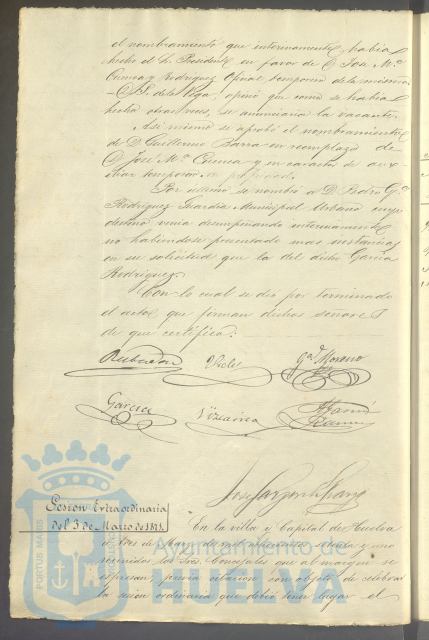 el nombramiento que interinamente habia
hecho el Sr. Presidente en favor de D. Jose Mª
Cuenca y Rodriguez Oficial temporero de la misma
D. S. de la Vega, opinó que como se habia
hecho otras veces, se anunciara la vacante.
Asi mismo se aprobó el nombramiento
de D. Guillermo Barra en reemplazo de
D. José Mª Cuenca y en caracter de aux-
iliar temporero
Por último se nombró a D. Pedro Gª
Rodriguez Guardia Municipal Urbano cuyo
destino venia desempeñando interinamente
no habiendose presentado mas instancias
en su solicitud que la del dicho Garcia
Rodriguez.
Con lo cual se dio por terminado
el acto, que firman dichos señores
de que certifico:
Gª Moreno
Garcia
Vizcaino
Jose
Sesion Extraordinaria
del 3 de Marzo de 1871.
En la villa y Capital de Huelva
á tres de Marzo de mil ochocientos setenta y uno
reunidos los Sres. Concejales que al margen se
espresan, previa citacion con objeto de celebrar
la sesion ordinaria que debió tener lugar el
PORTUS MARIS
Ayuntamiento de
HUELVA